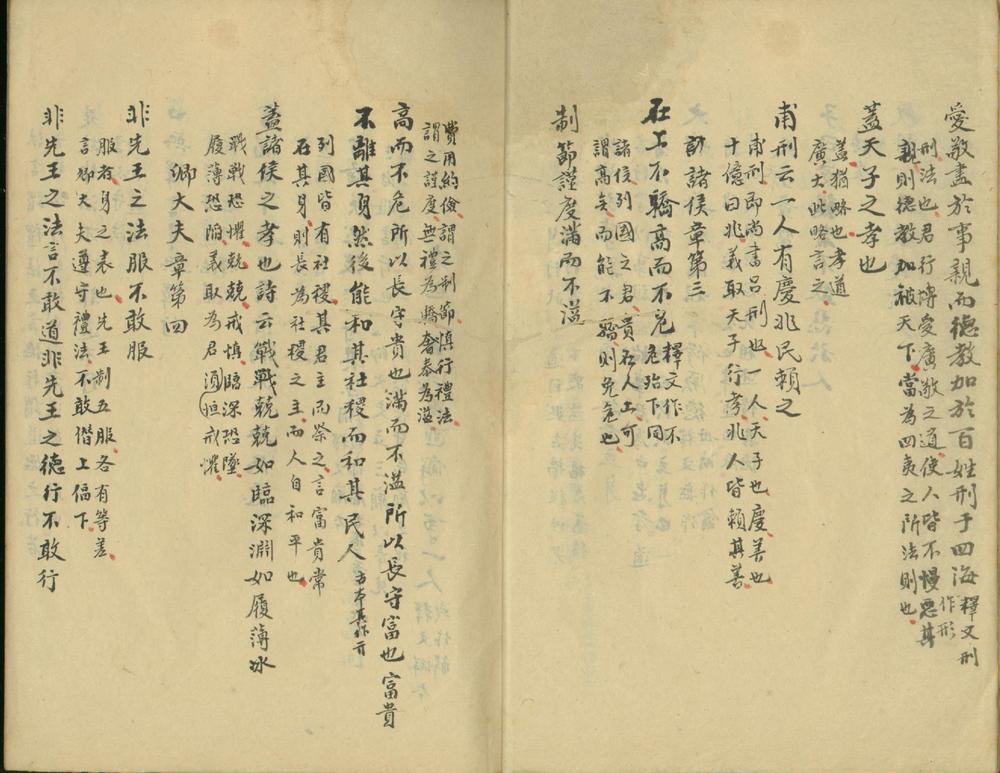 愛敬盡於事親而德教加於百姓刑于四海釋文刑作形
刑法也君行博愛廣敬之道使人皆不慢惡其
親則德教加被天下當為四夷之所法則也
蓋天子之孝也
蓋猶略也孝道
廣大此略言之
甫刑云一人有慶兆民賴之
甫刑即尚書呂刑也一人天子也慶善也
十億曰兆義取天子行孝兆人皆賴其善
諸侯章第三
在上不驕高而不危釋文作不危殆下同
諸侯列國之君貴在人上可
謂高矣而能不驕則免危也
制節謹度滿而不溢
費用約儉謂之制節慎行禮法
謂之謹度無禮為驕奢泰為溢
高而不危所以長守貴也滿而不溢所以長守富也富貴
不離其身然後能和其社稷而和其民人古本其作亓
列國皆有社稷其君主而祭之言富貴常
在其身則長為社稷之主而人自和平也
蓋諸侯之孝也詩云戰戰兢兢如臨深淵如履薄冰
戰戰恐懼兢兢戒慎臨深恐墜
履薄恐陷義取為君須恒戒懼
卿大夫章第四
非先王之法服不敢服
服者身之表也先王制五服各有等差
言卿大夫遵守禮法不敢僭上偪下
非先王之法言不敢道非先王之德行不敢行